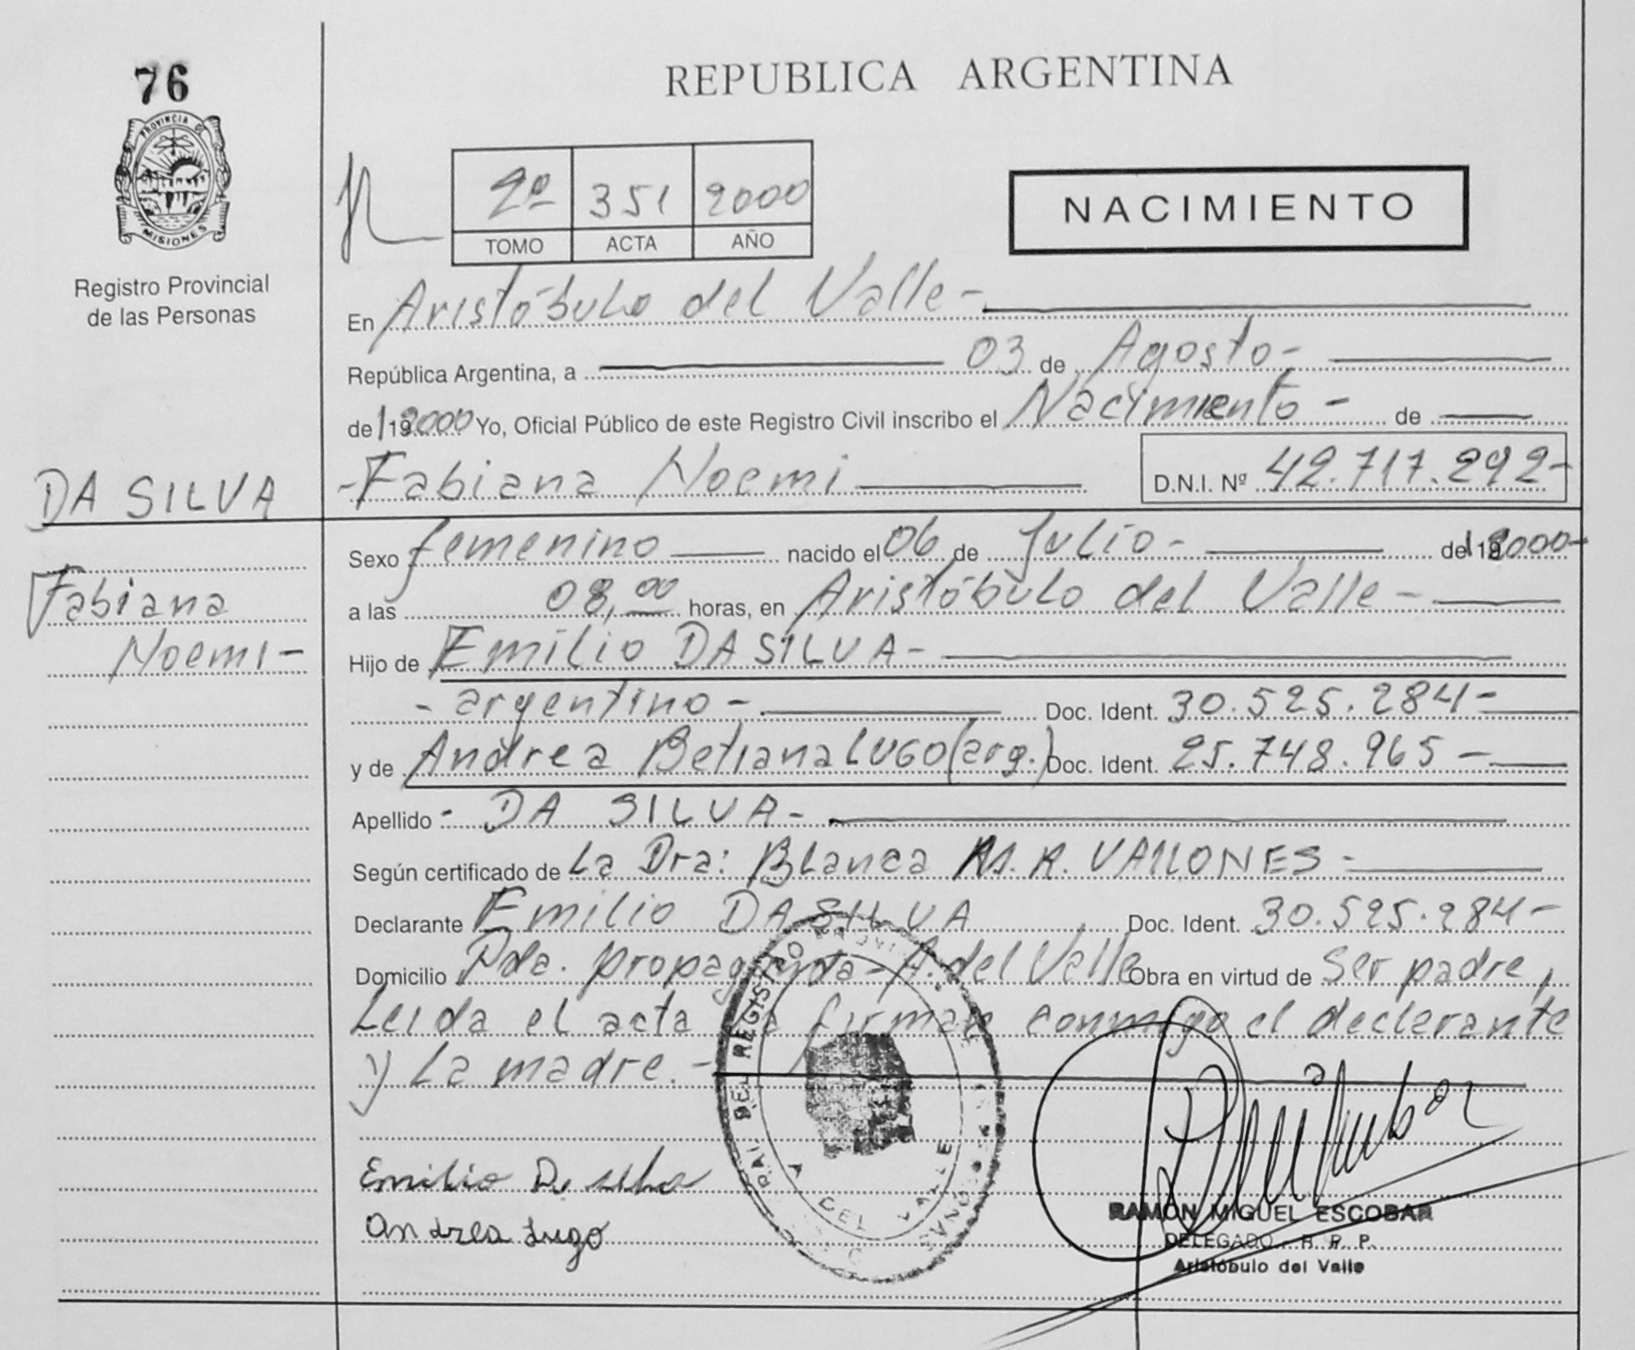 76
REPUBLICA ARGENTINA
PROVINCIA DE
MISIONES
Registro Provincial
de las Personas
2º 351 2000
TOMO ACTA AÑO
NACIMIENTO
En Aristóbulo del Valle-
República Argentina, a 03 de Agosto-
de 192000 Yo, Oficial Público de este Registro Civil inscribo el Nacimiento - de
DA SILVA
Fabiana
Noemi-
-Fabiana Noemi
D.N.I. Nº 42.717.292-
Sexo femenino nacido el 06 de Julio- de 192000-
a las 08,00 horas, en Aristóbulo del Valle-
Hijo de Emilio DA SILVA-
- argentino - Doc. Ident. 30.525.284-
y de Andrea Betiana LUGO (arg.) Doc. Ident. 25.748.965-
Apellido - DA SILVA-
Según certificado de La Dra: Blanca M. R. VALLONES-
Declarante Emilio DA SILVA Doc. Ident. 30.525.284-
Domicilio Pda. propaganda- A. del Valle Obra en virtud de Ser padre,
Leida el acta la firman conmigo el declarante
y La madre.-
DEL REGISTRO
A. DEL VALLE
Emilio Da silva
Andrea Lugo
RAMÓN MIGUEL ESCOBAR
DELEGADO R. P. P.
Aristóbulo del Valle